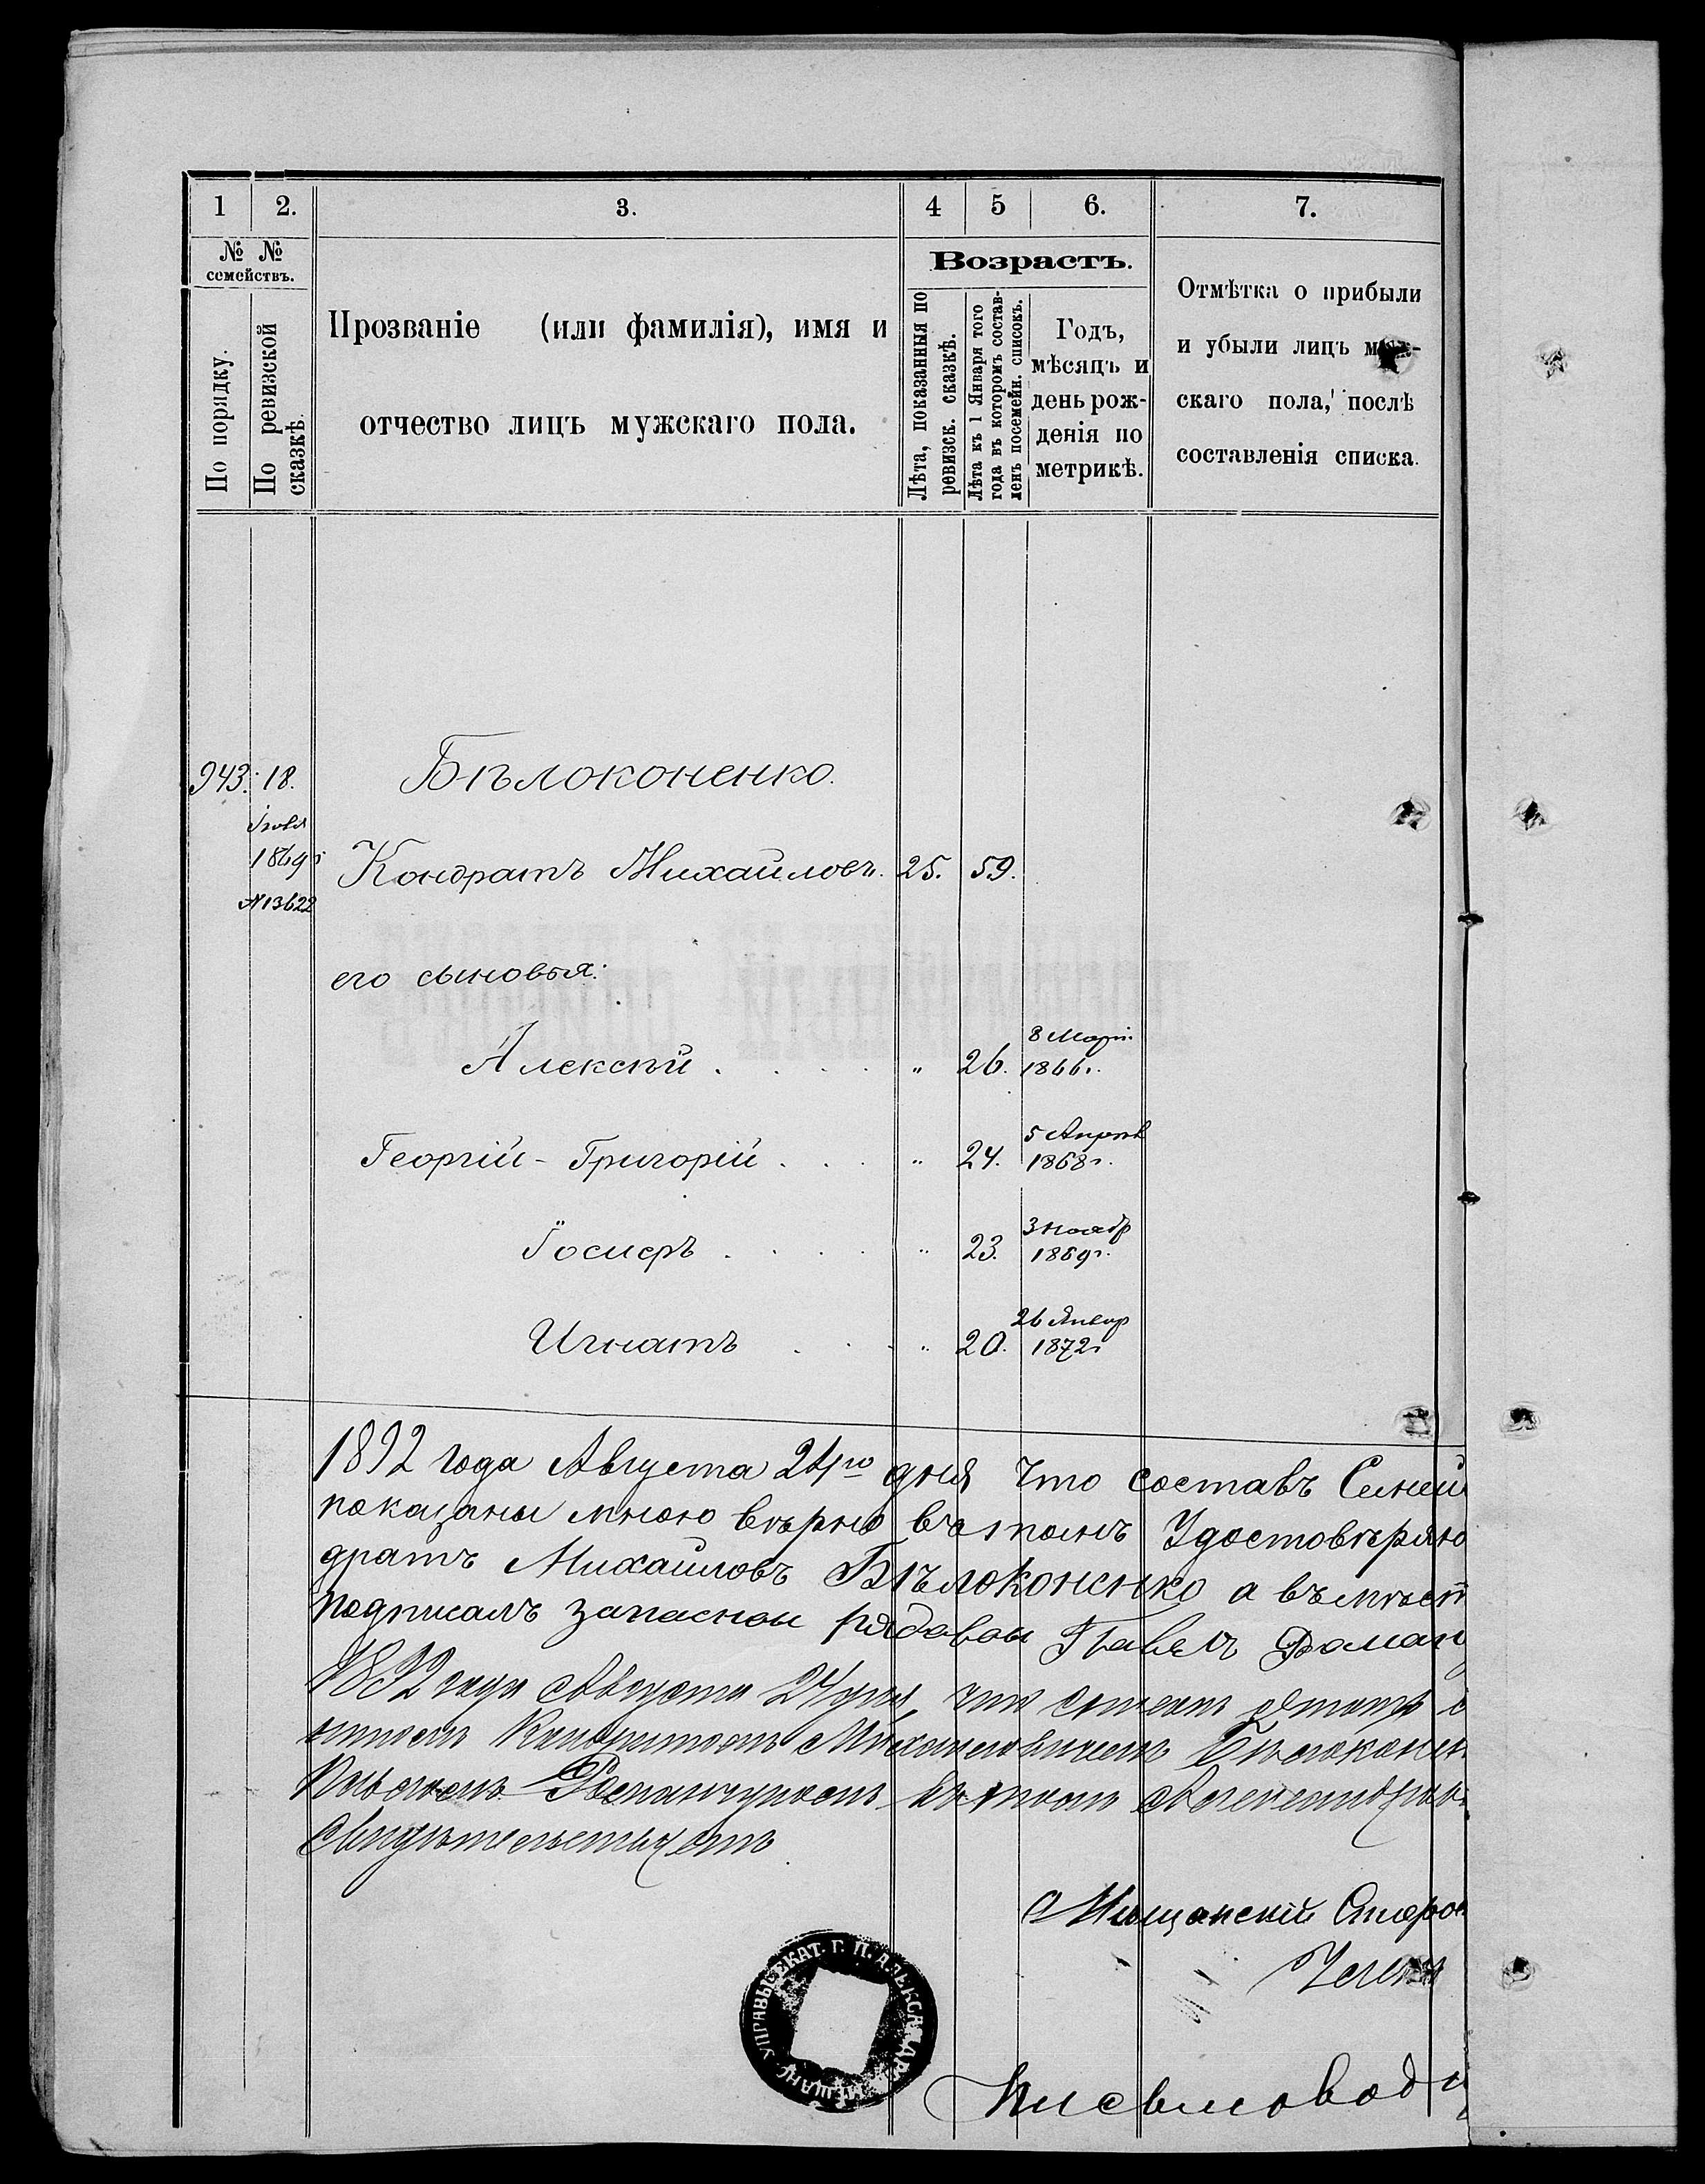 1 2. 3. 4 5 6. 7.
№ № семействъ.
По порядку.
По ревизской сказкѣ.
Прозваніе (или фамилія), имя и
отчество лицъ мужскаго пола.
Возрастъ.
Лѣта, показанныя по ревизск. сказкѣ.
Лѣта къ 1 Января того года въ которомъ составленъ посемейн. списокъ.
Годъ,
мѣсяцъ и
день рож-
денія по
метрикѣ.
Отмѣтка о прибыли
и убыли лицъ муж-
скаго пола, послѣ
составленія списка.
943. 18. Бѣлоконенко.
1869г
№13622
Кондратъ Михайловъ. 25. 59.
его сыновья:
Алексѣй . . . . „ 26. 8 Март. 1866г.
Георгій-Григорій . . . „ 24. 5 Апрѣл 1868г.
Іосифъ . . . . „ 23. 3 Ноябр 1869г.
Игнатъ . . . „ 20. 26 Январ 1872г
1892 года Августа 24го дня что составъ Семей
показаны мною вѣрно въ томъ Удостовѣряю
дратъ Михайловъ Бѣлоконенко а въ мѣст
подписалъ запасной рядовой Павелъ Роман
1892 года Августа 24 дня, что
Кондратомъ Михайловичемъ Бѣлоконен
свидѣтельствуетъ
Мѣщанскій Старос
УПРАВЫ ЕКАТ. Г. П. АЛЕКСАНДР. МѢЩАНС.
Письмовод